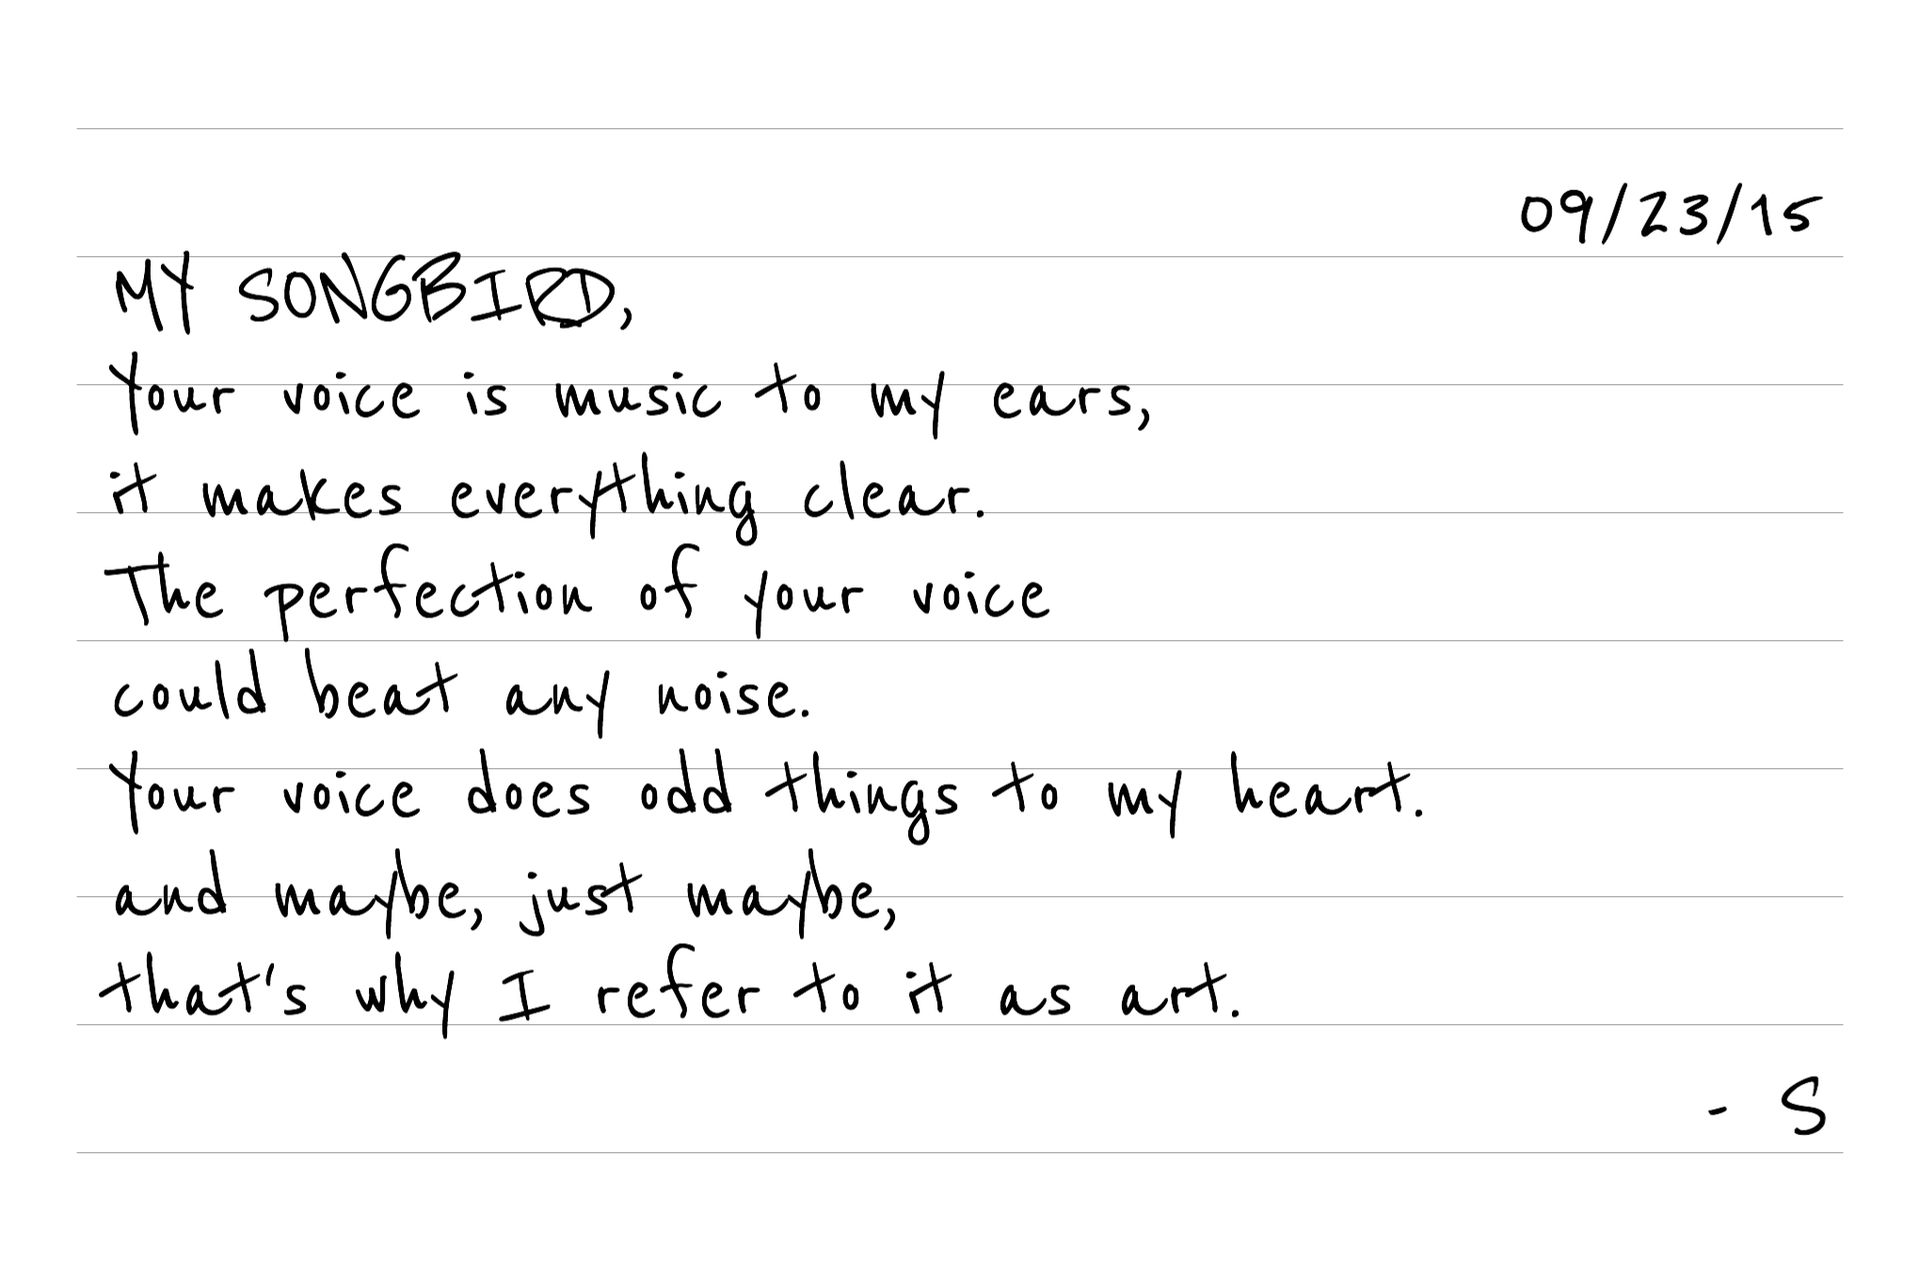 09/23/15
MY SONGBIRD,
Your voice is music to my ears,
it makes everything clear.
The perfection of your voice
could beat any noise.
Your voice does odd things to my heart.
and maybe, just maybe,
that's why I refer to it as art.
- S